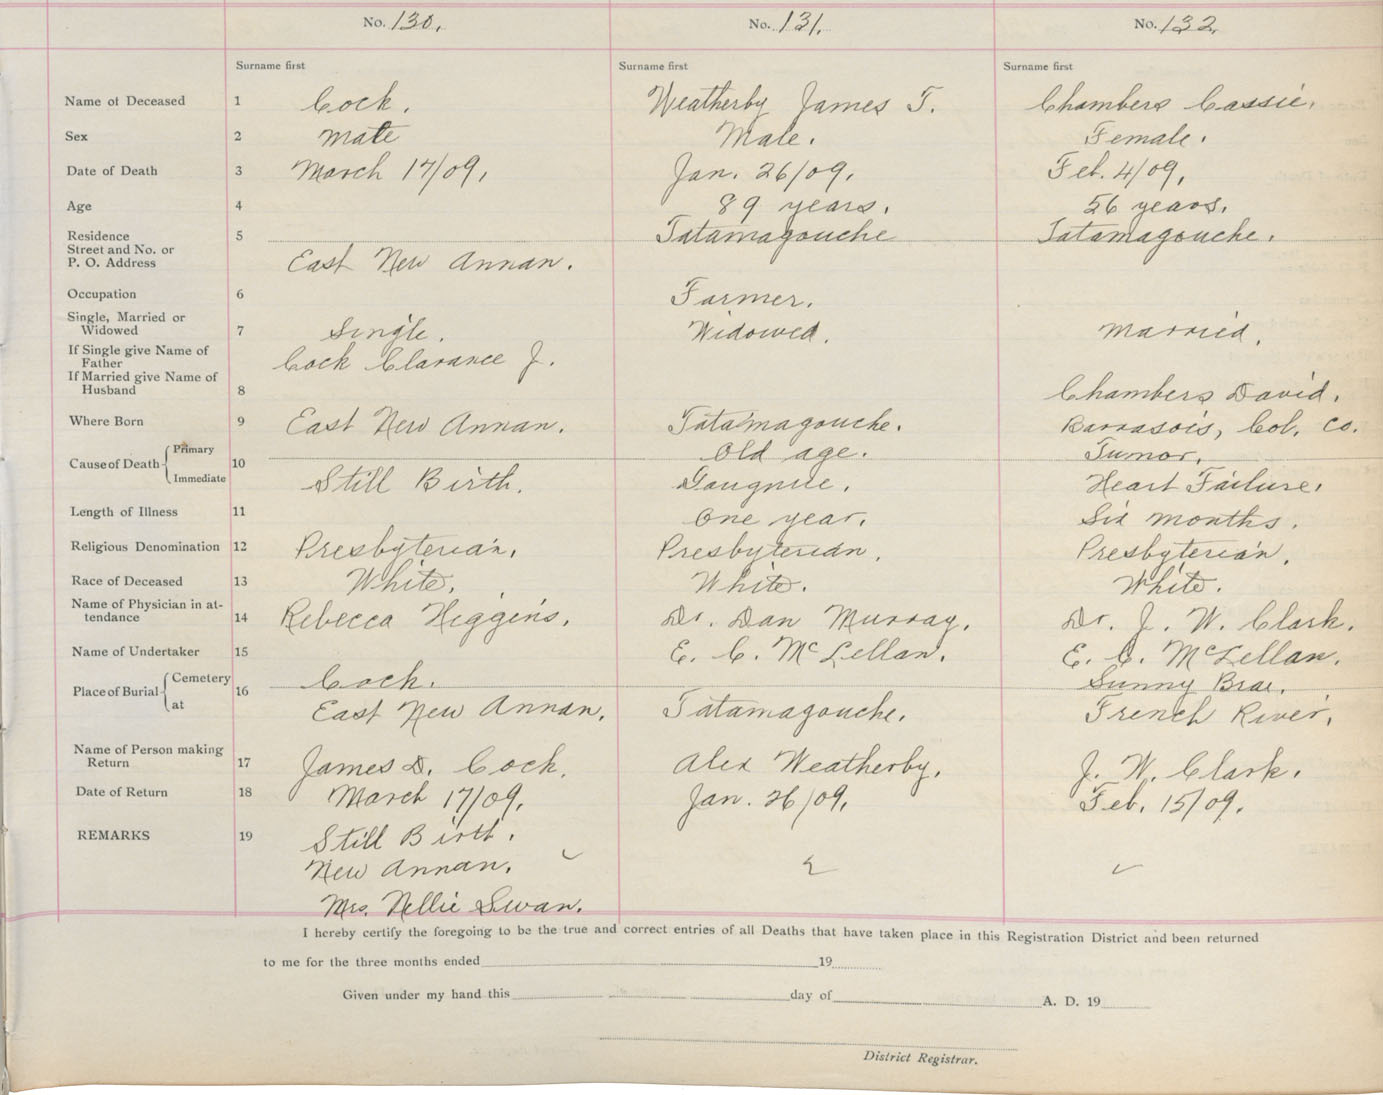 No. 130. No. 131. No. 132.
Surname first Surname first Surname first
Name of Deceased 1 Cock. Weatherby James T. Chambers Cassie.
Sex 2 Male Male. Female.
Date of Death 3 March 17/09. Jan. 26/09. Feb. 4/09.
Age 4 89 years. 56 years.
Residence 5 Tatamagouche Tatamagouche.
Street and No. or
P. O. Address East New Annan.
Occupation 6 Farmer.
Single, Married or
Widowed 7 Single. Widowed. Married.
If Single give Name of
Father Cock Clarance J.
If Married give Name of
Husband 8 Chambers David.
Where Born 9 East New Annan. Tatamagouche. Barrasois, Col. Co.
Cause of Death Primary 10 Old age. Tumor.
Immediate Still Birth. Gangrule. Heart Failure.
Length of Illness 11 One year. Six months.
Religious Denomination 12 Presbyterian. Presbyterian. Presbyterian.
Race of Deceased 13 White. White. White.
Name of Physician in at-
tendance 14 Rebecca Higgins. Dr. Dan Murray. Dr. J. W. Clark.
Name of Undertaker 15 E. C. McLellan. E. C. McLellan.
Place of Burial Cemetery 16 Cock. Sunny Brae.
at East New Annan. Tatamagouche. French River.
Name of Person making
Return 17 James D. Cock. Alex Weatherby. J. W. Clark.
Date of Return 18 March 17/09. Jan. 26/09. Feb. 15/09.
REMARKS 19 Still Birth.
New Annan.
Mrs. Nellie Swan.
I hereby certify the foregoing to be the true and correct entries of all Deaths that have taken place in this Registration District and been returned
to me for the three months ended 19
Given under my hand this day of A. D. 19
District Registrar.